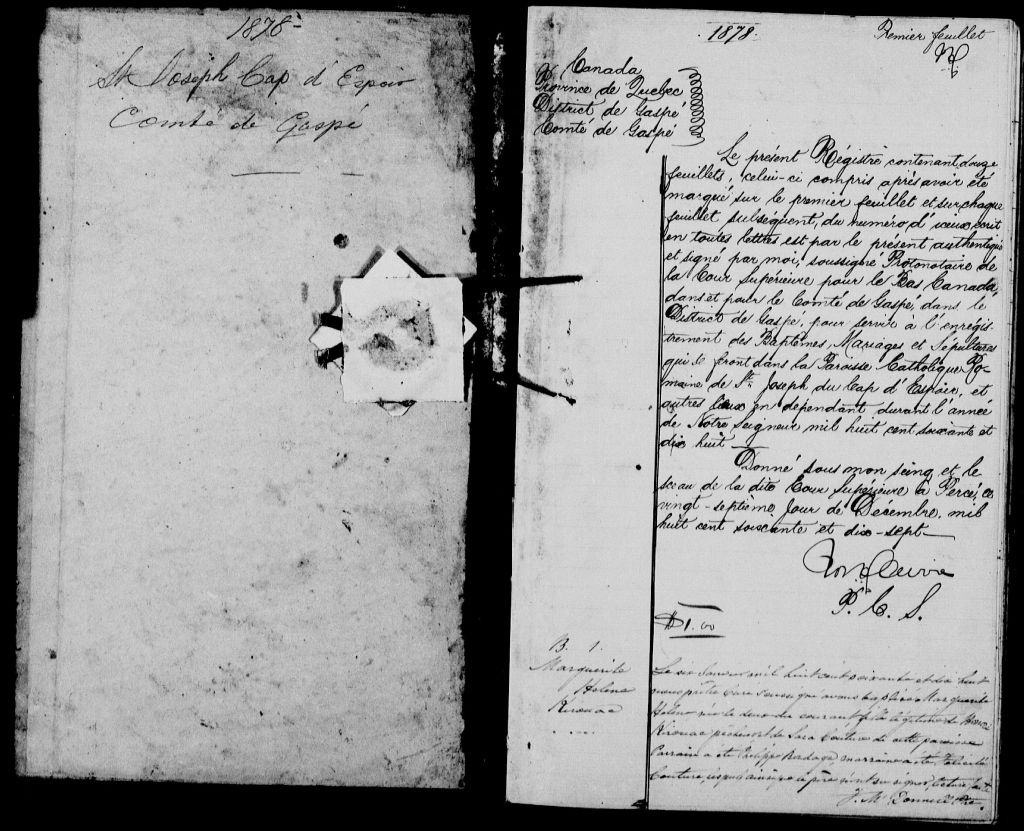 1878
St Joseph Cap d'Espoir
Comté de Gaspé
1878.
Premier feuillet
Canada
Province de Quebec
District de Gaspé
Comté de Gaspé
Le présent Régistre contenant douze
feuillets, celui-ci compris après avoir été
marqué sur le premier feuillet et sur chaque
feuillet subséquent, du numéro d'iceux écrit
en toutes lettres est par le présent authentiqué
et signé par moi, soussigné Protonotaire de
la Cour Supérieure pour le Bas Canada,
dans et pour le Comté de Gaspé, dans le
District de Gaspé, pour servir à l'enrégis-
trement des Baptêmes, Mariages et Sépultures
qui se feront dans la Paroisse Catholique Ro-
maine de St. Joseph du Cap d'Espoir, et
autres lieux en dépendant durant l'année
de Notre Seigneur mil huit cent soixante et
dix huit
Donné sous mon seing et le
sceau de la dite Cour Supérieure à Percé, ce
vingt-septième Jour de Décembre, mil
huit cent soixante et dix-sept
P. C. S.
$1.00
B. 1.
Marguerite
Helène
Kirouac
Le six Janvier mil huit cent soixante et dix huit
nous prêtre Curé soussigné avons baptisé Marguerite
Helène née le deux du courant fille légitime de
Kirouac pêcheur et de Sara Couture de cette paroisse
Parrain a été Philippe marraine a été Félicité
Couture, lecture faite
J. McDonnell Ptre.